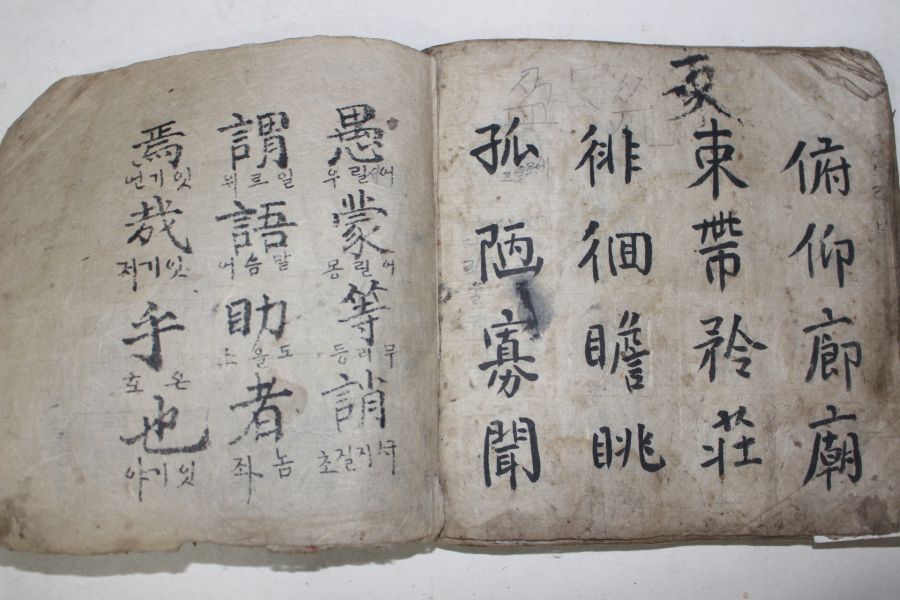 俯仰廊廟
東帶矜荘
徘徊瞻眺
孤陋寡聞
愚蒙等誚
어릴우
어릴몽
무리등
謂語助者
일르위
말슴어
도울조
놈좌
焉哉乎也
잇기언
잇기저
온호
잇기야